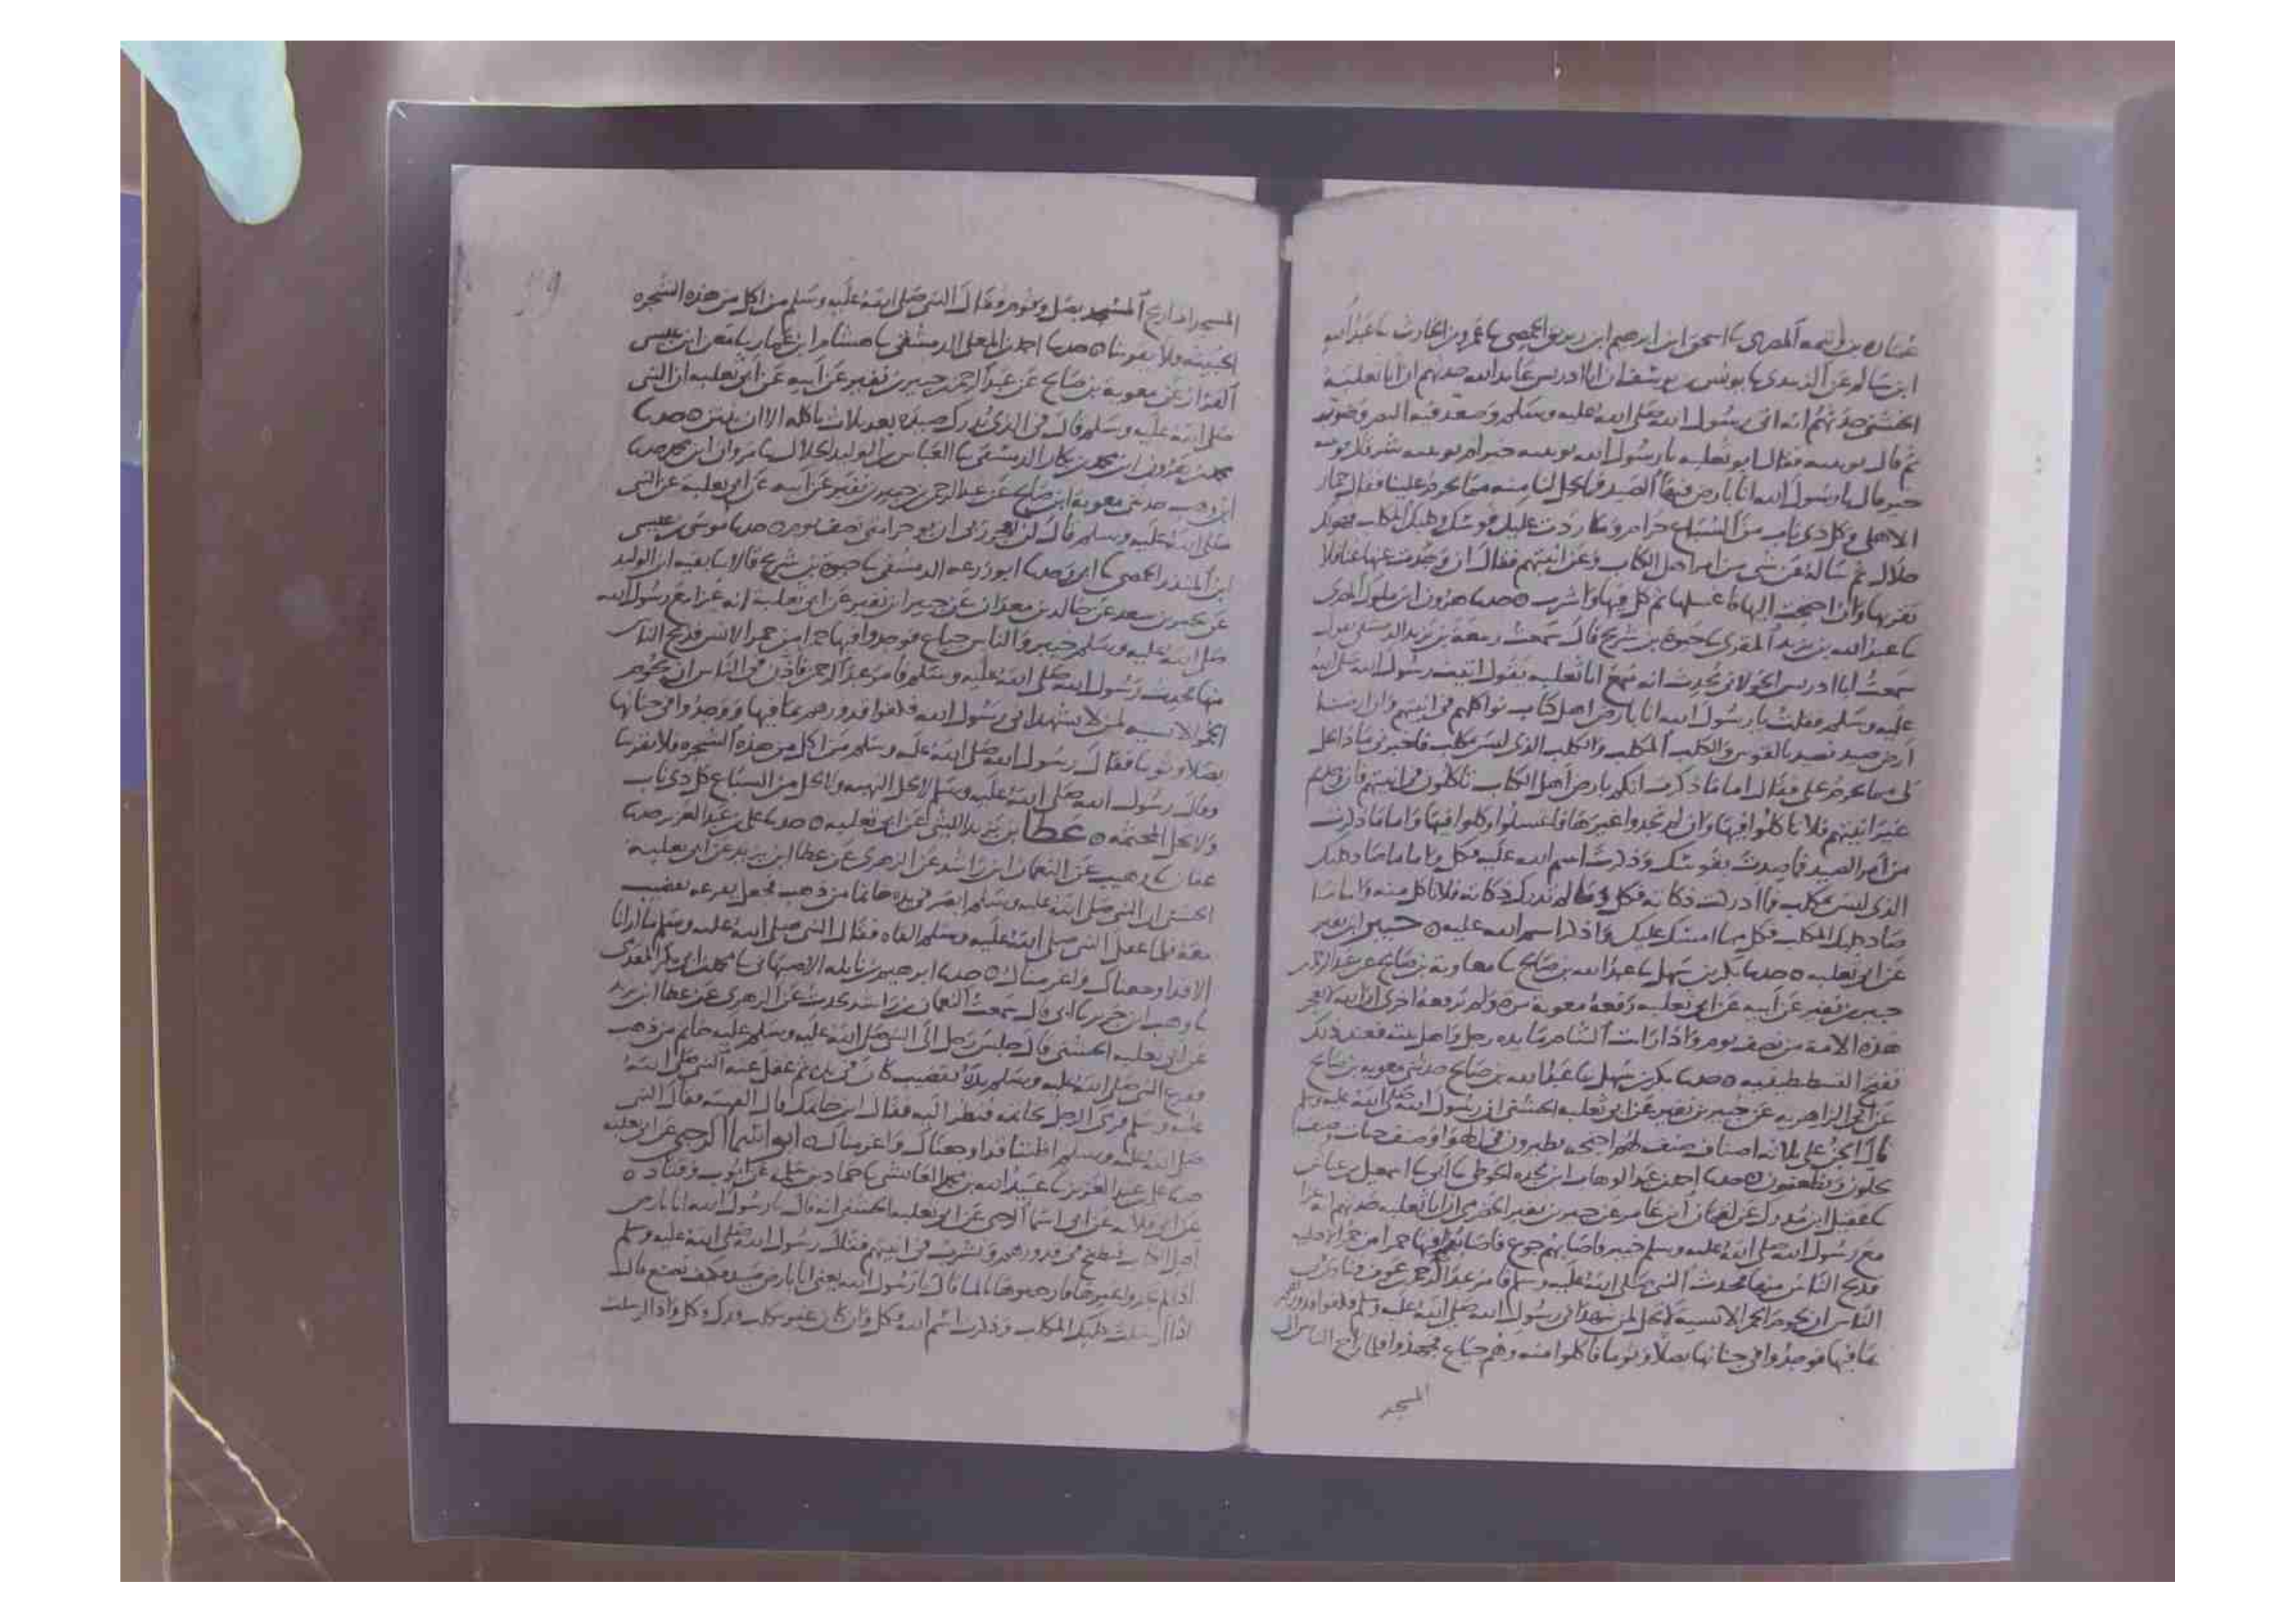 ابن سالم عن الزبيدي يونس بن يوسف ان ابا ادريس عايد الله حدثهم ان ابا ثعلبة
الخشني حدثهم انه اتى رسول الله صلى الله عليه وسلم وصعد فيه البصر وصوبه
ثم قال نويبته فقال ابو ثعلبه يا رسول الله نويبته خير ام نويبته شر قال نويبته
خير قال يا رسول الله انا بارض فيها الصيد فما يحل لنا منه مما يحرم علينا فقال حمار
الاهلي وكل ذي ناب من السباع حرام وما ردت عليك قوسك وكلبك المكلب فهو لك
حلال ثم ساله عن شي من امر اهل الكتاب وعن انيتهم فقال ان وجدت عنها غنا فلا
تقربها وان احتجت اليها فاغسلها ثم كل فيها واشرب ٥ حدثنا هرون ابن ملول المصري
نا عبد الله بن يزيد المقرى نا حيوة بن شريح قال سمعت ربيعة بن يزيد الدمشقي يقول
سمعت ابا ادريس الخولاني يحدث انه سمع ابا ثعلبه يقول اتيت رسول الله صلى الله
عليه وسلم فقلت يا رسول الله انا بارض اهل كتاب نواكلهم في انيتهم وان ارضنا
ارض صيد نصيد بالقوس والكلب المكلب والكلب الذي ليس مكلب فاخبرني ماذا يحل
لي مما يحرم علي فقال اما ما ذكرت انكم بارض اهل الكتاب تاكلون في انيتهم فان وجدتم
غير انيتهم فلا تاكلوا فيها وان لم تجدوا غيرها فاغسلوا وكلوا فيها واما ما ذكرت
من امر الصيد فما صدت بقوسك وذكرت اسم الله عليه فكل واما ما صاد كلبك
الذي ليس مكلب فما ادركت ذكاته فكل وما لم تدرك ذكاته فلا تاكل منه واما ما
صاد كلبك المكلب فكل مما امسك عليك واذكر اسم الله عليه ٥ جبير ابن نفير
عن ابي ثعلبه ٥ حدثنا بكر بن سهل نا عبد الله بن صالح نا معاوية بن صالح عن عبد الرحمن
جبير بن نفير عن ابيه عن ابي ثعلبه رفعه معوية مرة ولم يرفعه اخرى ان الله لا يعجز
هذه الامة من نصف يوم واذا رات الشام مايده رجل واهل بيته فعند ذلك
تفتح القسطنطينيه ٥ حدثنا بكر بن سهل نا عبد الله بن صالح حدثني معوية بن صالح
عن ابي الزاهريه عن جبير بن نفير عن ابي ثعلبه الخشني ان رسول الله صلى الله عليه وسلم
قال الجن على ثلاثه اصناف صنف لهم اجنحه يطيرون في الهوا وصنف حيات وصنف
يحلون ويظعنون ٥ حدثنا احمد بن عبد الوهاب ابن نجده الحوطي نا ابي نا اسمعيل بن عياش
نا عقيل ابن مدرك عن لقمان ابن عامر عن جبير بن نفير الحضرمي ان ابا ثعلبه حدثهم انه غزا
مع رسول الله صلى الله عليه وسلم خيبر فاصابهم جوع فاصابوا فيها حمرا من حمر الاهليه
فذبح الناس منها فحدث النبي صلى الله عليه وسلم فامر عبد الرحمن بن عوف فنادى في
الناس ان لحوم الحمر الانسية لا تحل لمن شهد اني رسول الله صلى الله عليه وسلم فكفوا قدورهم
بما فيها فوجدوا في جنانها بصلا وثوما فاكلوا منه وهم جياع فجهدوا فلما راح الناس الى
المسجد
المسجد اذا ريح المسجد بصل وثوم وقال النبي صلى الله عليه وسلم من اكل من هذه الشجره
الخبيثه فلا يقربنا ٥ حدثنا احمد بن المعلى الدمشقي نا هشام ابن عمار نا معن ابن عيسى
القزاز عن معوية بن صالح عن عبد الرحمن بن جبير بن نفير عن ابيه عن ابي ثعلبه ان النبي
صلى الله عليه وسلم قال في الذي يدرك صيده بعد ثلاث ياكله الا ان ينتن ٥ حدثنا
محمد بن هرون ابن محمد بن بكار الدمشقي نا العباس بن الوليد الخلال نا مروان ابن محمد حدثنا
ابن وهب حدثني معوية ابن صالح عن عبد الرحمن بن جبير بن نفير عن ابيه عن ابي ثعلبة عن النبي
صلى الله عليه وسلم قال لن يعجز ربي ان يوخر امتي نصف يوم ٥ حدثنا موسى بن عيسى
ابن المنذر الحمصي نا ابي وحدثنا ابو زرعه الدمشقي نا حيوة بن شريح قالا نا بقيه ابن الوليد
عن بحير بن سعد عن خالد بن معدان عن جبير ابن نفير عن ابي ثعلبة انه غزا مع رسول الله
صلى الله عليه وسلم خيبر والناس جياع فوجدوا فيها حمرا من حمر الانس فذبح الناس
منها فحدث رسول الله صلى الله عليه وسلم فامر عبد الرحمن فاذن في الناس ان لحوم
الحمر الانسيه لمن لا يشهد اني رسول الله فكفوا قدورهم بما فيها ووجدوا في جنانها
بصلا وثوما فقال رسول الله صلى الله عليه وسلم من اكل من هذه الشجره فلا يقربنا
وقال رسول الله صلى الله عليه وسلم لا تحل النهبه ولا يحل من السباع كل ذي ناب
ولا تحل المجثمه ٥ عطا بن يزيد الليثي عن ابي ثعلبه ٥ حدثنا علي بن عبد العزيز حدثنا
عفان نا وهيب عن النعمان ابن راشد عن الزهري عن عطا ابن يزيد عن ابي ثعلبة
الخشني ان النبي صلى الله عليه وسلم ابصر في يده خاتما من ذهب فجعل يقرعه بقضيب
معه فلما غفل النبي صلى الله عليه وسلم القاه فقال النبي صلى الله عليه وسلم ما ارانا
الا قد اوجعناك واغرمناك ٥ حدثنا ابرهيم بن نايله الاصبهاني نا محمد ابن ابي بكر المقدمي
نا وهب ابن جرير نا ابي قال سمعت النعمان بن راشد يحدث عن الزهري عن عطا ابن يزيد
عن ابي ثعلبه الخشني قال جلس رجل الى النبي صلى الله عليه وسلم عليه خاتم من ذهب
فقرع النبي صلى الله عليه وسلم يده بقضيب كان في يده ثم غفل عنه النبي صلى الله
عليه وسلم فرمى الرجل بخاتمه فنظر اليه فقال اين خاتمك قال القيته فقال النبي
صلى الله عليه وسلم اظننا قد اوجعناك واغرمناك ٥ ابو اسما الرحبي عن ابي ثعلبه
حدثنا علي بن عبد العزيز نا عبيد الله بن محمد العايشي نا حماد بن سلمه عن ايوب وقتاده ٥
عن ابي قلابه عن ابي اسما الرحبي عن ابي ثعلبه الخشني انه قال يا رسول الله انا بارض
اهل الكتاب فنطبخ في قدورهم ونشرب في انيتهم فقال رسول الله صلى الله عليه وسلم
اذا لم تجدوا غيرها فارحضوها بالما قال يا رسول الله يعني انا بارض صيد فكيف نصنع قال
اذا ارسلت كلبك المكلب وذكرت اسم الله فكل وان كان غير مكلب فذك وكل واذا ارسلت